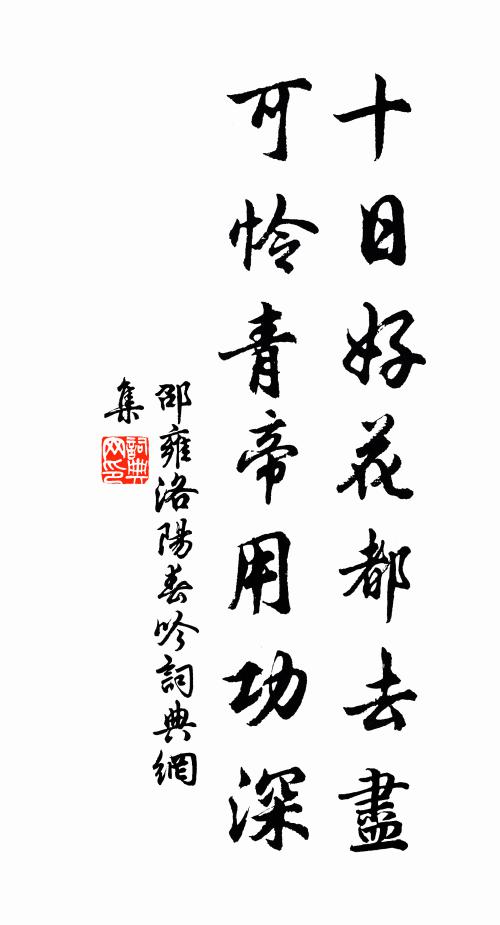 十日好花都去盡
可憐青帝用功深
邵雍洛陽春吟詞典網
集
詞典
网印